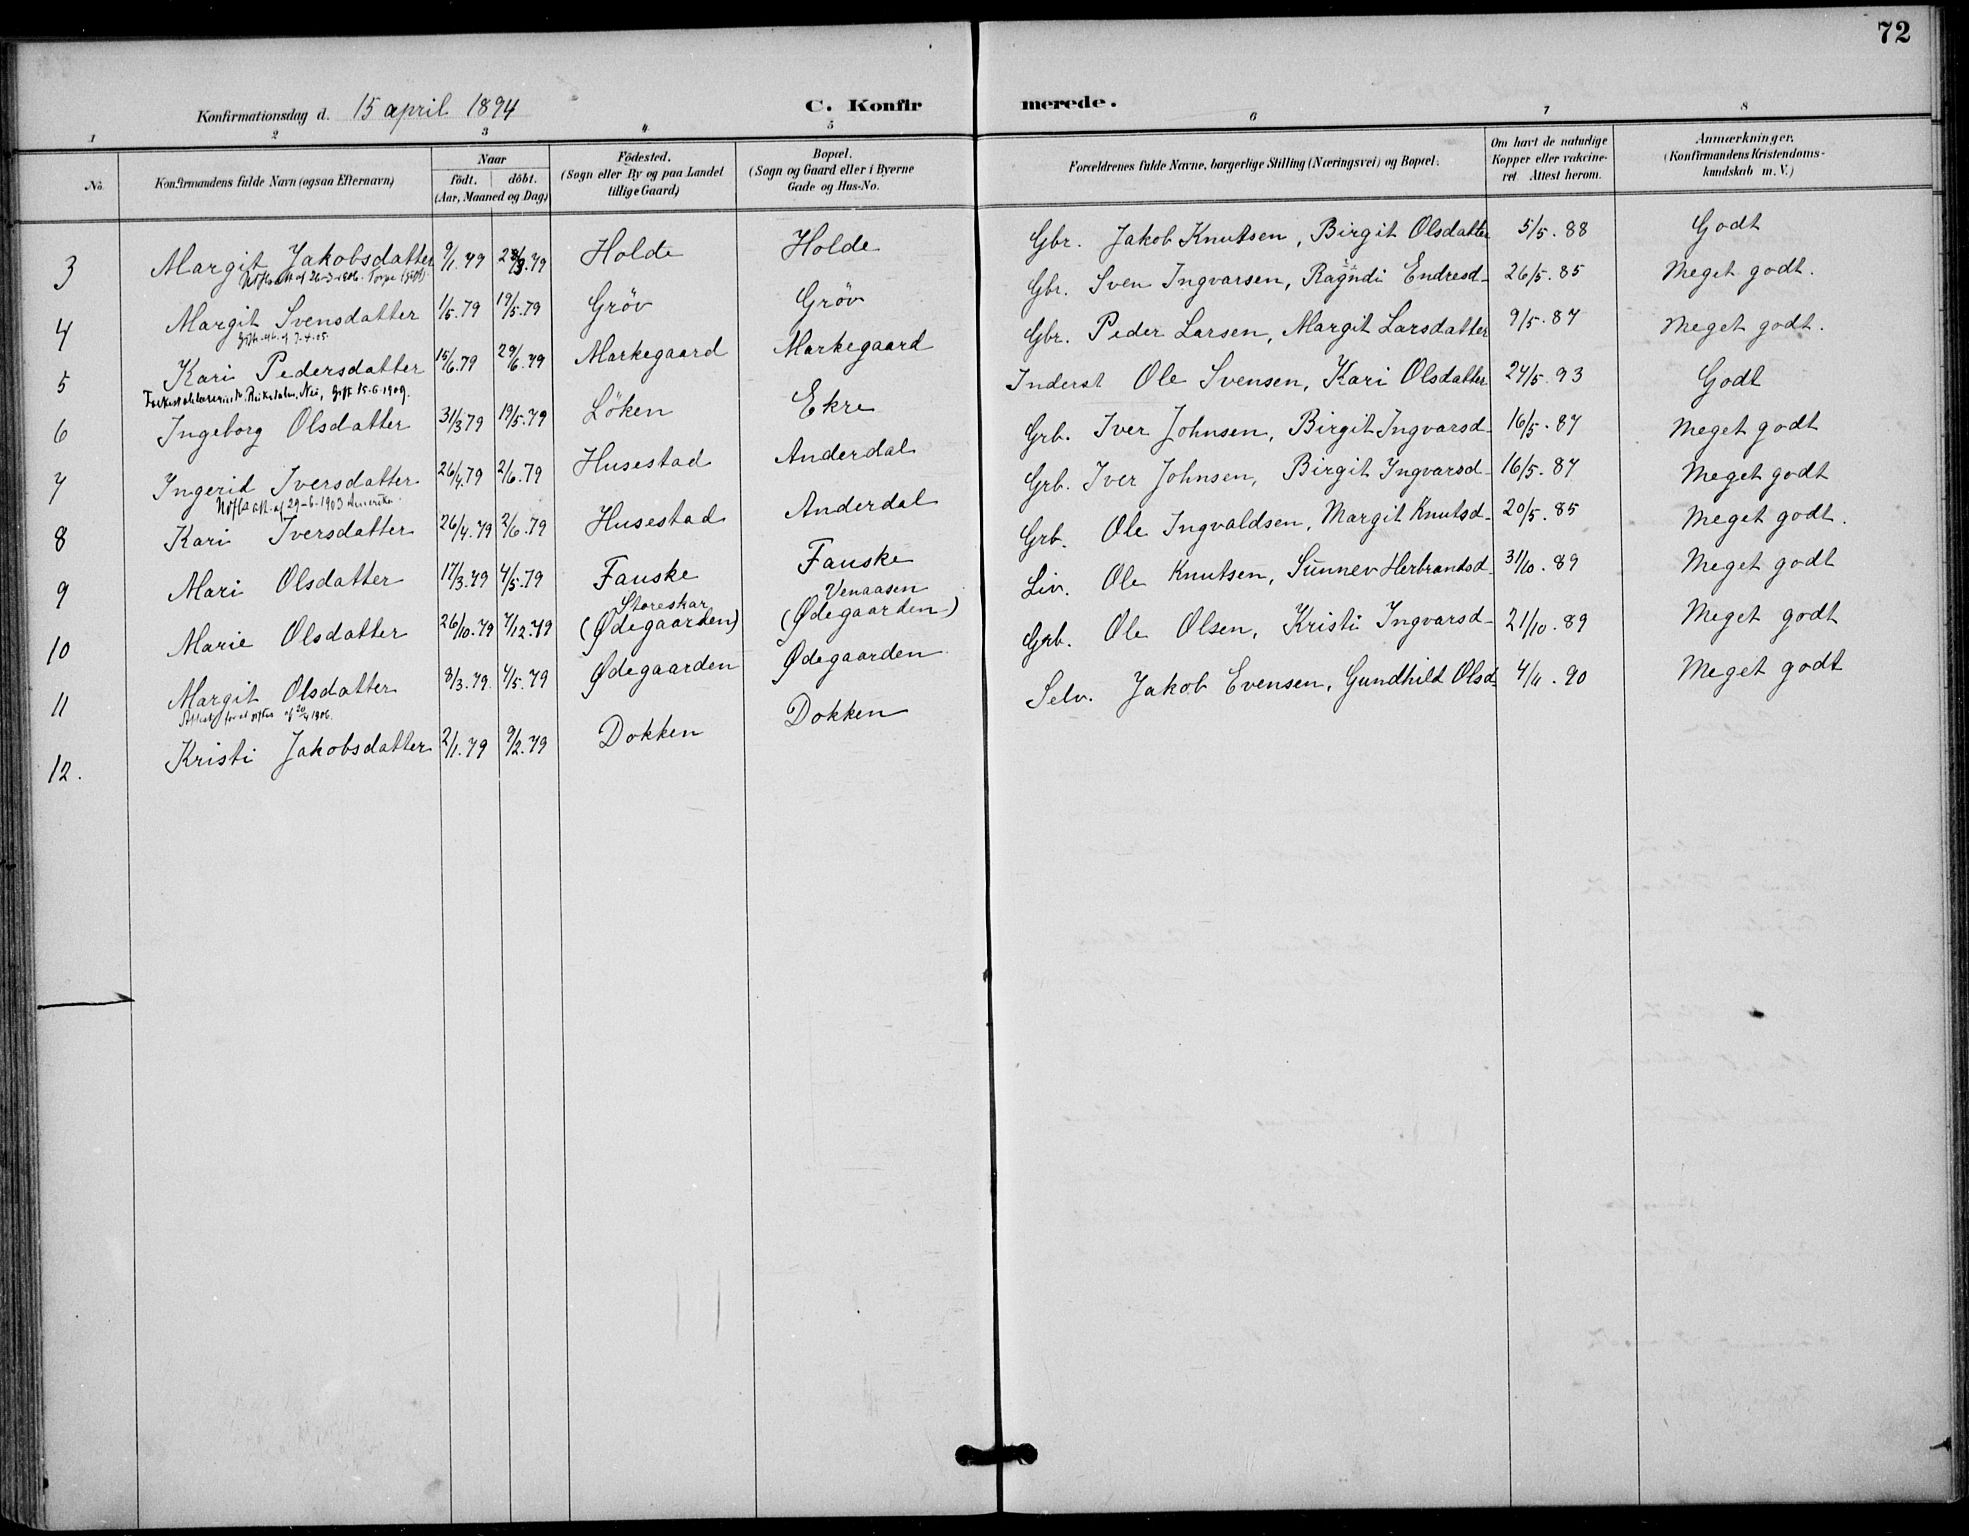 72
Konfirmationsdag d. 15 april 1894
C. Konfirmerede.
1 2 3 4 5 6 7 8
No.
Konfirmandens fulde Navn (ogsaa Efternavn)
Naar
født. døbt.
(Aar, Maaned og Dag)
Födested.
(Sogn eller By og paa Landet
tillige Gaard)
Bopæl.
(Sogn og Gaard eller i Byerne
Gade og Hus-No.
Forældrenes fulde Navne, borgerlige Stilling (Næringsvei) og Bopæl.
Om havt de naturlige
Kopper eller vakcine-
ret. Attest herom.
Anmærkninger.
(Konfirmandens Kristendoms-
kundskab m. V.)
3 Margit Jakobsdatter 9/1.79 23/3.79 Holde Holde Gbr. Jakob Knutsen, Birgit Olsdatter 5/5.88 Godt
att af 26-3-1906. Torpe (gift)
4 Margit Svensdatter 1/5.79 19/5.79 Gröv Gröv Gbr. Sven Ingvarsen, Ragndi Endresd. 26/5.85 Meget godt.
5 Kari Pedersdatter 15/6.79 29/6.79 Markegaard Markegaard Gbr. Peder Larsen, Margit Larsdatter 9/5.87 Meget godt.
Gift 15-6-1909.
6 Ingeborg Olsdatter 31/3 79 19/5.79 Löken Ekre Inderst Ole Svensen, Kari Olsdatter 24/5.93 Godt
7 Ingerid Iversdatter 26/4.79 2/6.79 Husestad Anderdal Grb. Iver Johnsen, Birgit Ingvarsd. 16/5.87 Meget godt
att. af 29-6-1903 Amerika.
8 Kari Iversdatter 26/4.79 2/6.79 Husestad Anderdal Grb. Iver Johnsen, Birgit Ingvarsd. 16/5.87 Meget godt
9 Mari Olsdatter 17/3.79 4/5.79 Fauske Fauske Grb. Ole Ingvaldsen, Margit Knutsd. 20/5.85 Meget godt.
Storeskar Venaasen
10 Marie Olsdatter 26/10.79 7/12.79 (Ødegaarden) (Ødegaarden) Liv. Ole Knutsen, Sünnev Herbrandsd. 31/10.89 Meget godt
11 Margit Olsdatter 8/3.79. 4/5.79 Ødegaarden Ødegaarden Grb. Ole Olsen, Kristi Ingvarsd. 21/10.89 Meget godt
12. Kristi Jakobsdatter 2/1.79 9/2.79 Dokken Dokken Selv. Jakob Evensen, Gundhild Olsd. 4/11.90 Meget godt